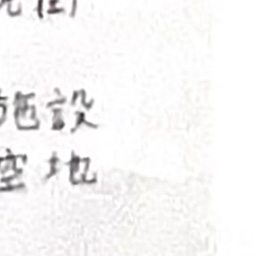 施設
空地